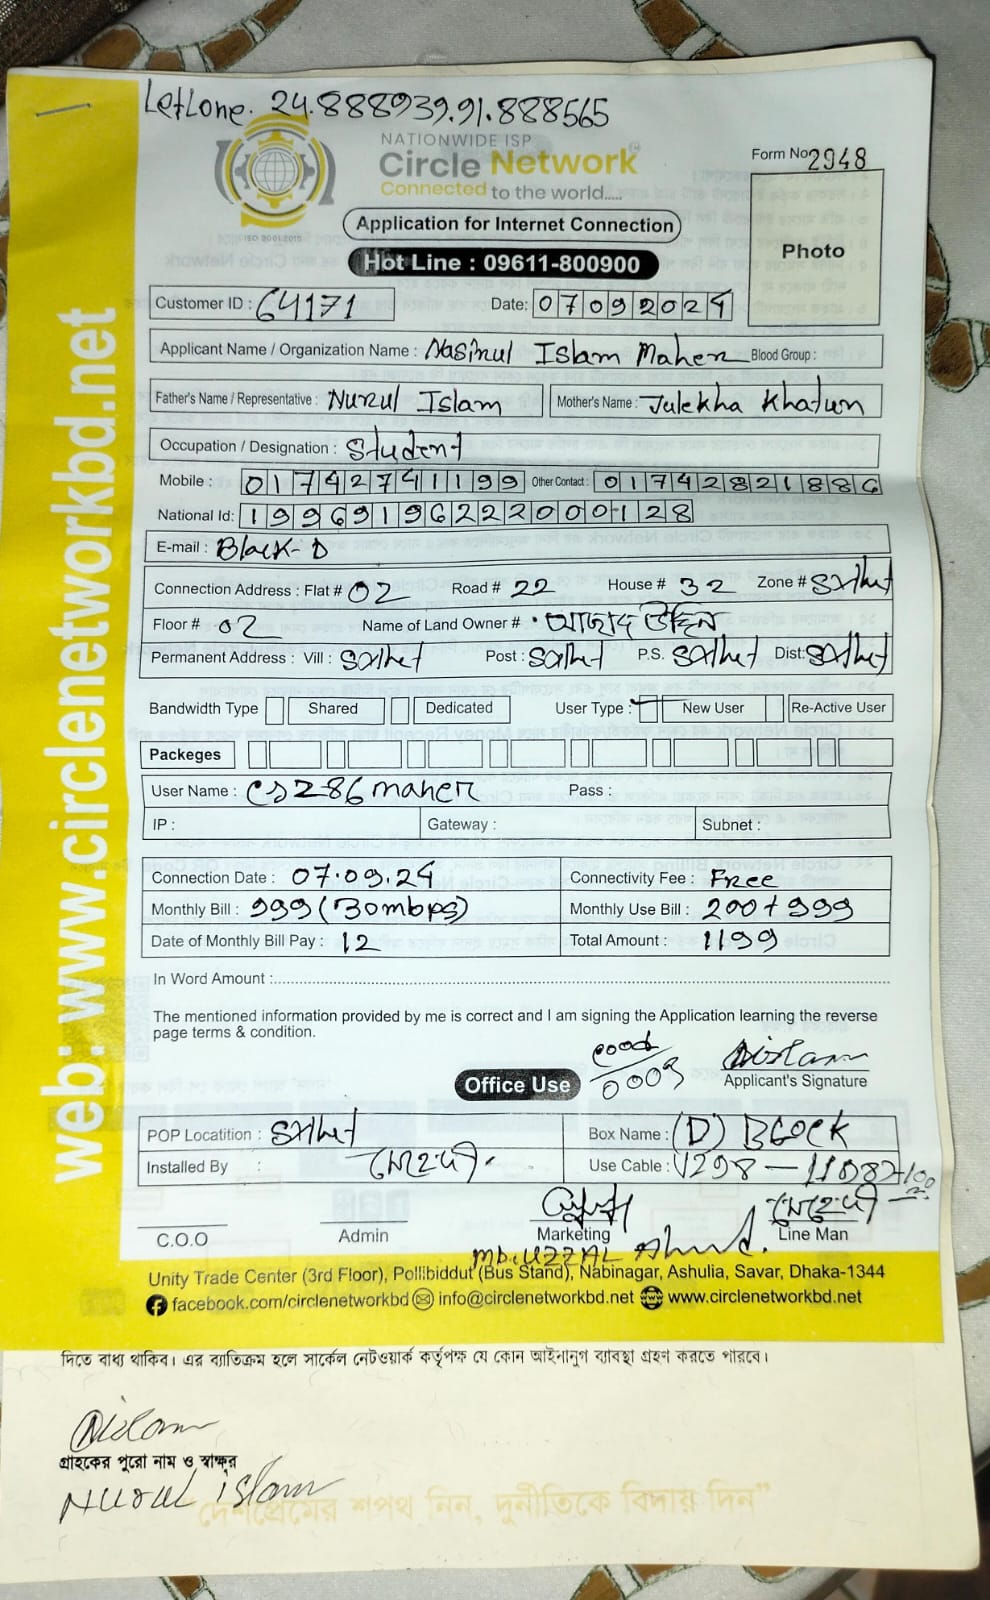 Letlone. 24.888939.91.888565
NATIONWIDE ISP
Circle Network
Connected to the world.....
ISO 9001:2015
Form No 2948
Application for Internet Connection
Photo
Hot Line : 09611-800900
Customer ID : 64171 Date: 07092024
Applicant Name / Organization Name : Nasirul Islam Maher Blood Group :
Father's Name / Representative : Nurul Islam Mother's Name : Julekha Khatun
Occupation / Designation : Student
Mobile : 01742741199 Other Contact : 01742821886
National Id: 19969196222000128
E-mail : Block-D
Connection Address : Flat # 02 Road # 22 House # 32 Zone # Sylhet
Floor # 02 Name of Land Owner # আজাদ উদ্দিন
Permanent Address : Vill : Sylhet Post : Sylhet P.S. Sylhet Dist: Sylhet
Bandwidth Type Shared Dedicated User Type : New User Re-Active User
Packeges
User Name : cs286maher Pass :
IP : Gateway : Subnet :
Connection Date : 07.09.24 Connectivity Fee : Free
Monthly Bill : 999 (30mbps) Monthly Use Bill : 200+999
Date of Monthly Bill Pay : 12 Total Amount : 1199
In Word Amount :
The mentioned information provided by me is correct and I am signing the Application learning the reverse
page terms & condition.
Office Use
Applicant's Signature
POP Locatition : Sylhet Box Name : (D) Block
Installed By : মেহেদী Use Cable : 1298 — 1198
C.O.O Admin Marketing মেহেদী Line Man
Md. UZZAL Ahmed.
Unity Trade Center (3rd Floor), Pollibiddut (Bus Stand), Nabinagar, Ashulia, Savar, Dhaka-1344
facebook.com/circlenetworkbd info@circlenetworkbd.net www.circlenetworkbd.net
web: www.circlenetworkbd.net
দিতে বাধ্য থাকিব। এর ব্যতিক্রম হলে সার্কেল নেটওয়ার্ক কর্তৃপক্ষ যে কোন আইনানুগ ব্যাবস্থা গ্রহণ করতে পারবে।
গ্রাহকের পুরো নাম ও স্বাক্ষর
Nurul islam
“দেশপ্রেমের শপথ নিন, দুর্নীতিকে বিদায় দিন”